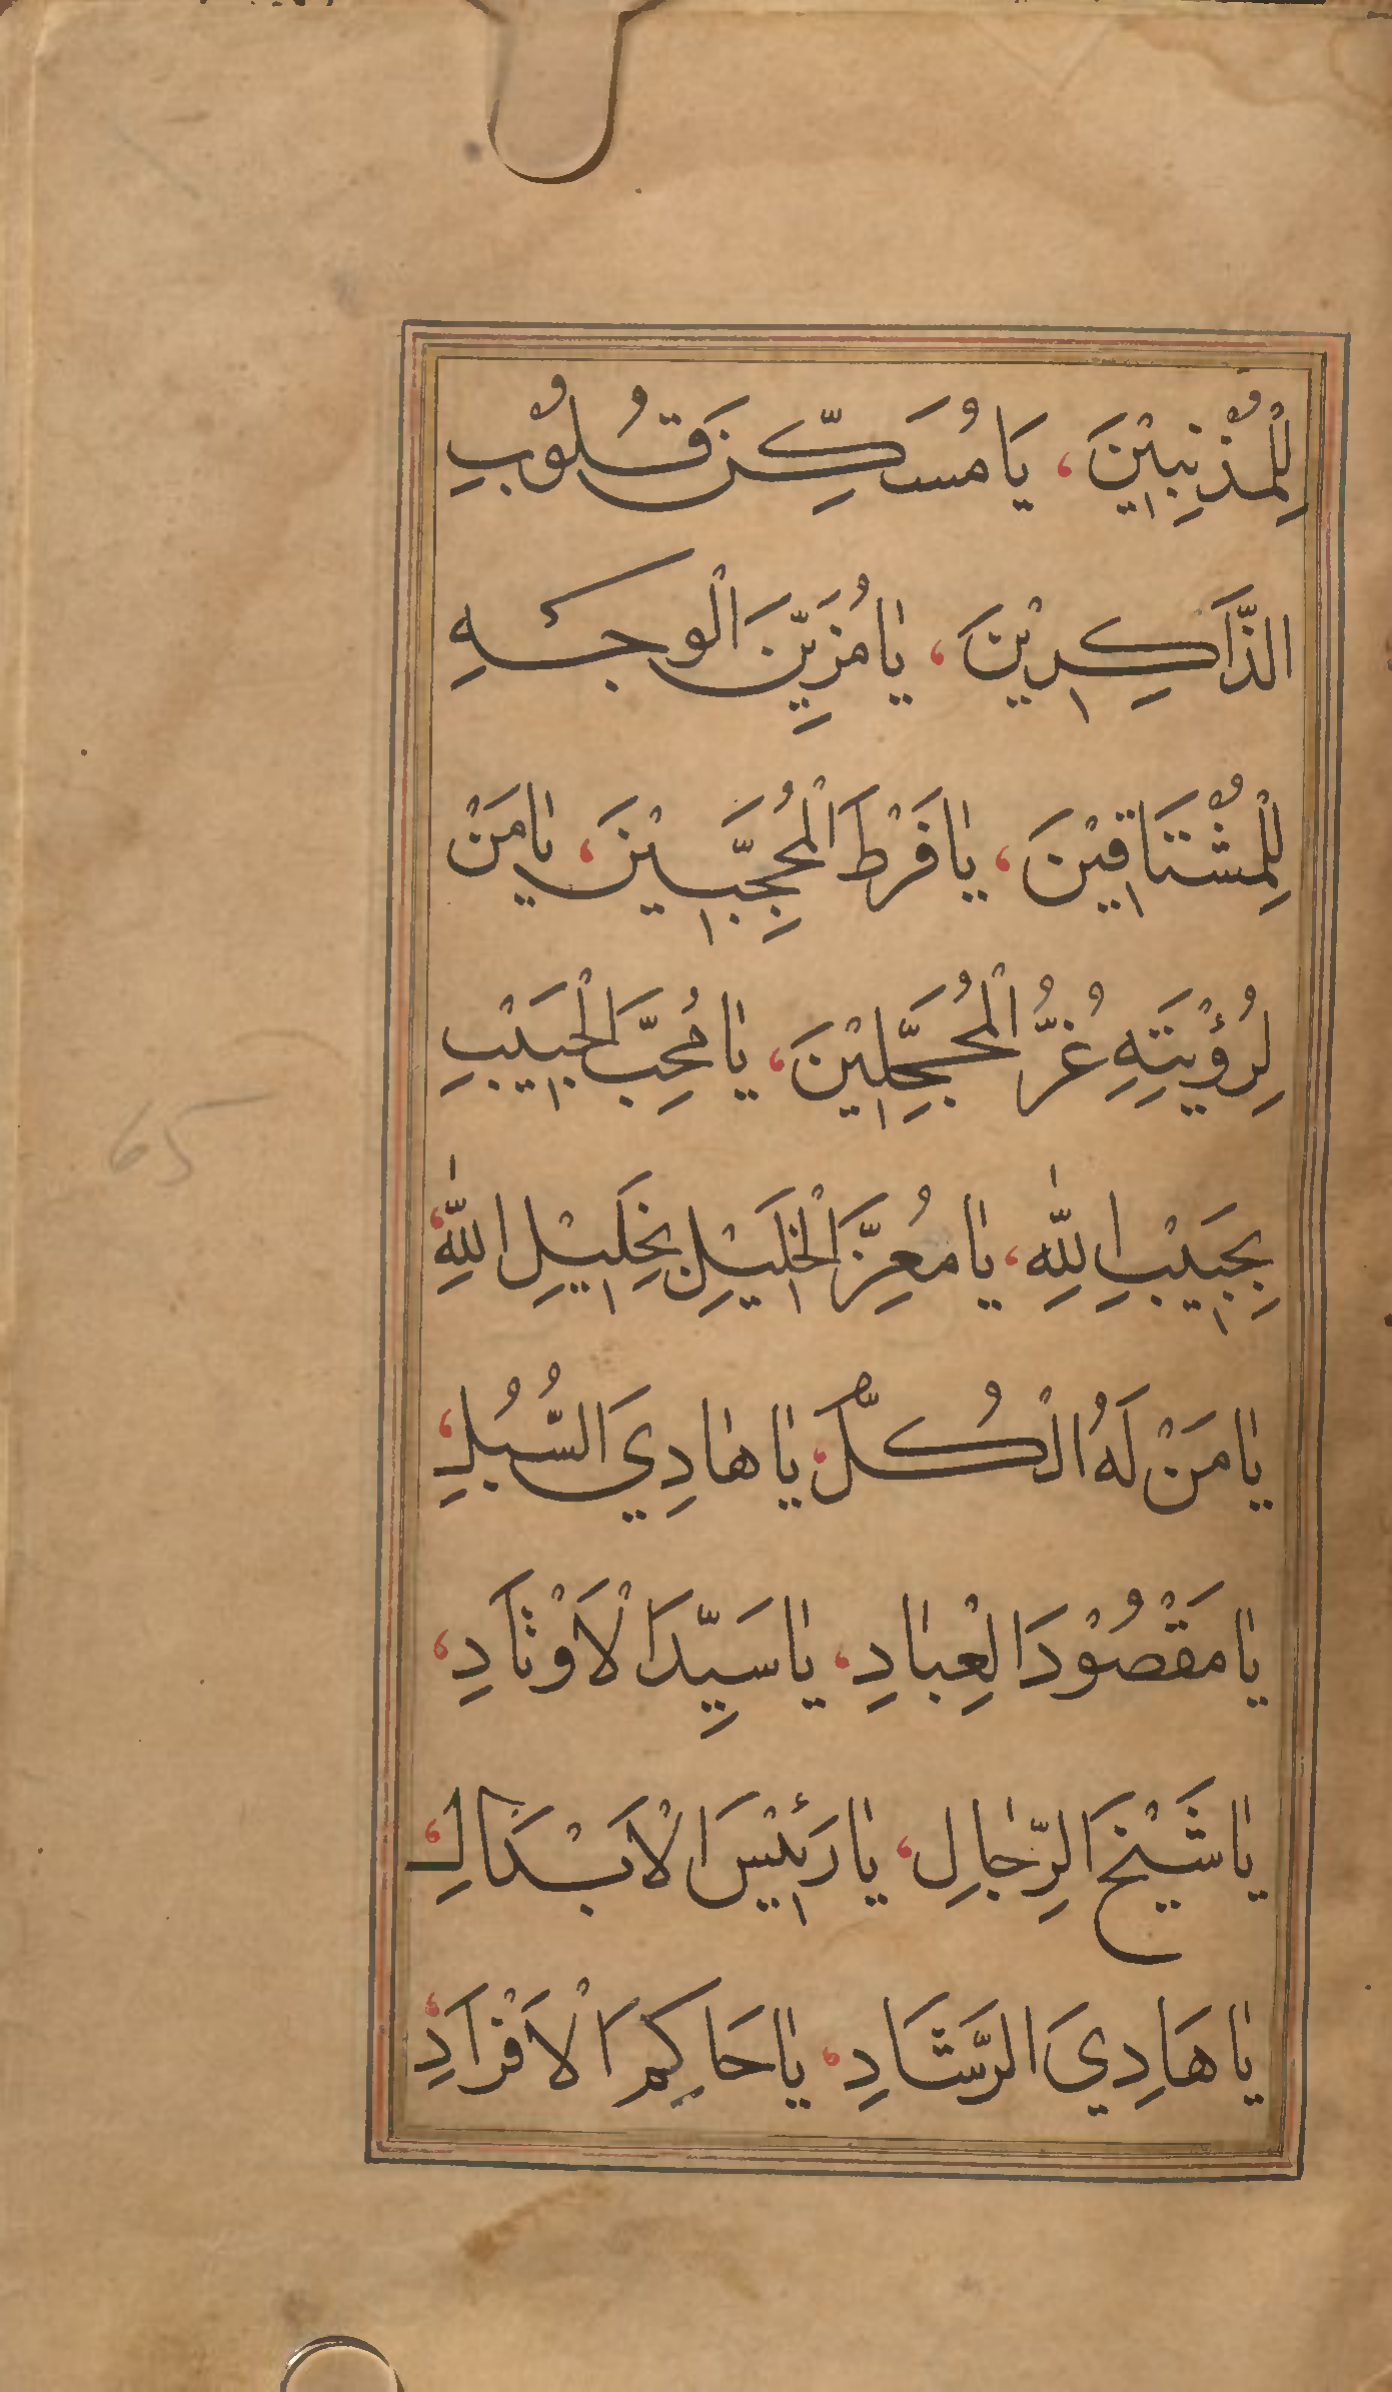 لِلْمُذْنِبِيْنَ، يَا مُسَكِّنَ قُلُوْبِ
الذَّاكِرِيْنَ، يَا مُزَيِّنَ الْوجْهِ
لِلْمُشْتَاقِيْنَ، يَا فَرْطَ الْمُحِجَّبِيْنَ، يَا مَنْ
لِرُؤْيَتِهِ غُرُّ الْمُحَجَّلِيْنَ، يَا مُحِبَّ الْحَبِيْبِ
بِحَبِيْبِ اللّٰهِ، يَا مُعِزَّ الْخَلِيْلِ بِخَلِيْلِ اللّٰهِ،
يَا مَنْ لَهُ الْكُلُّ، يَا هَادِيَ السُّبُلِ،
يَا مَقْصُوْدَ الْعِبَادِ، يَا سَيِّدَ الْاَوْتَادِ،
يَا شَيْخَ الرِّجَالِ، يَا رَئِيْسَ الْاَبْدَالِ،
يَا هَادِيَ الرَّشَادِ، يَا حَاكِمَ الْاَفْرَادِ،
65